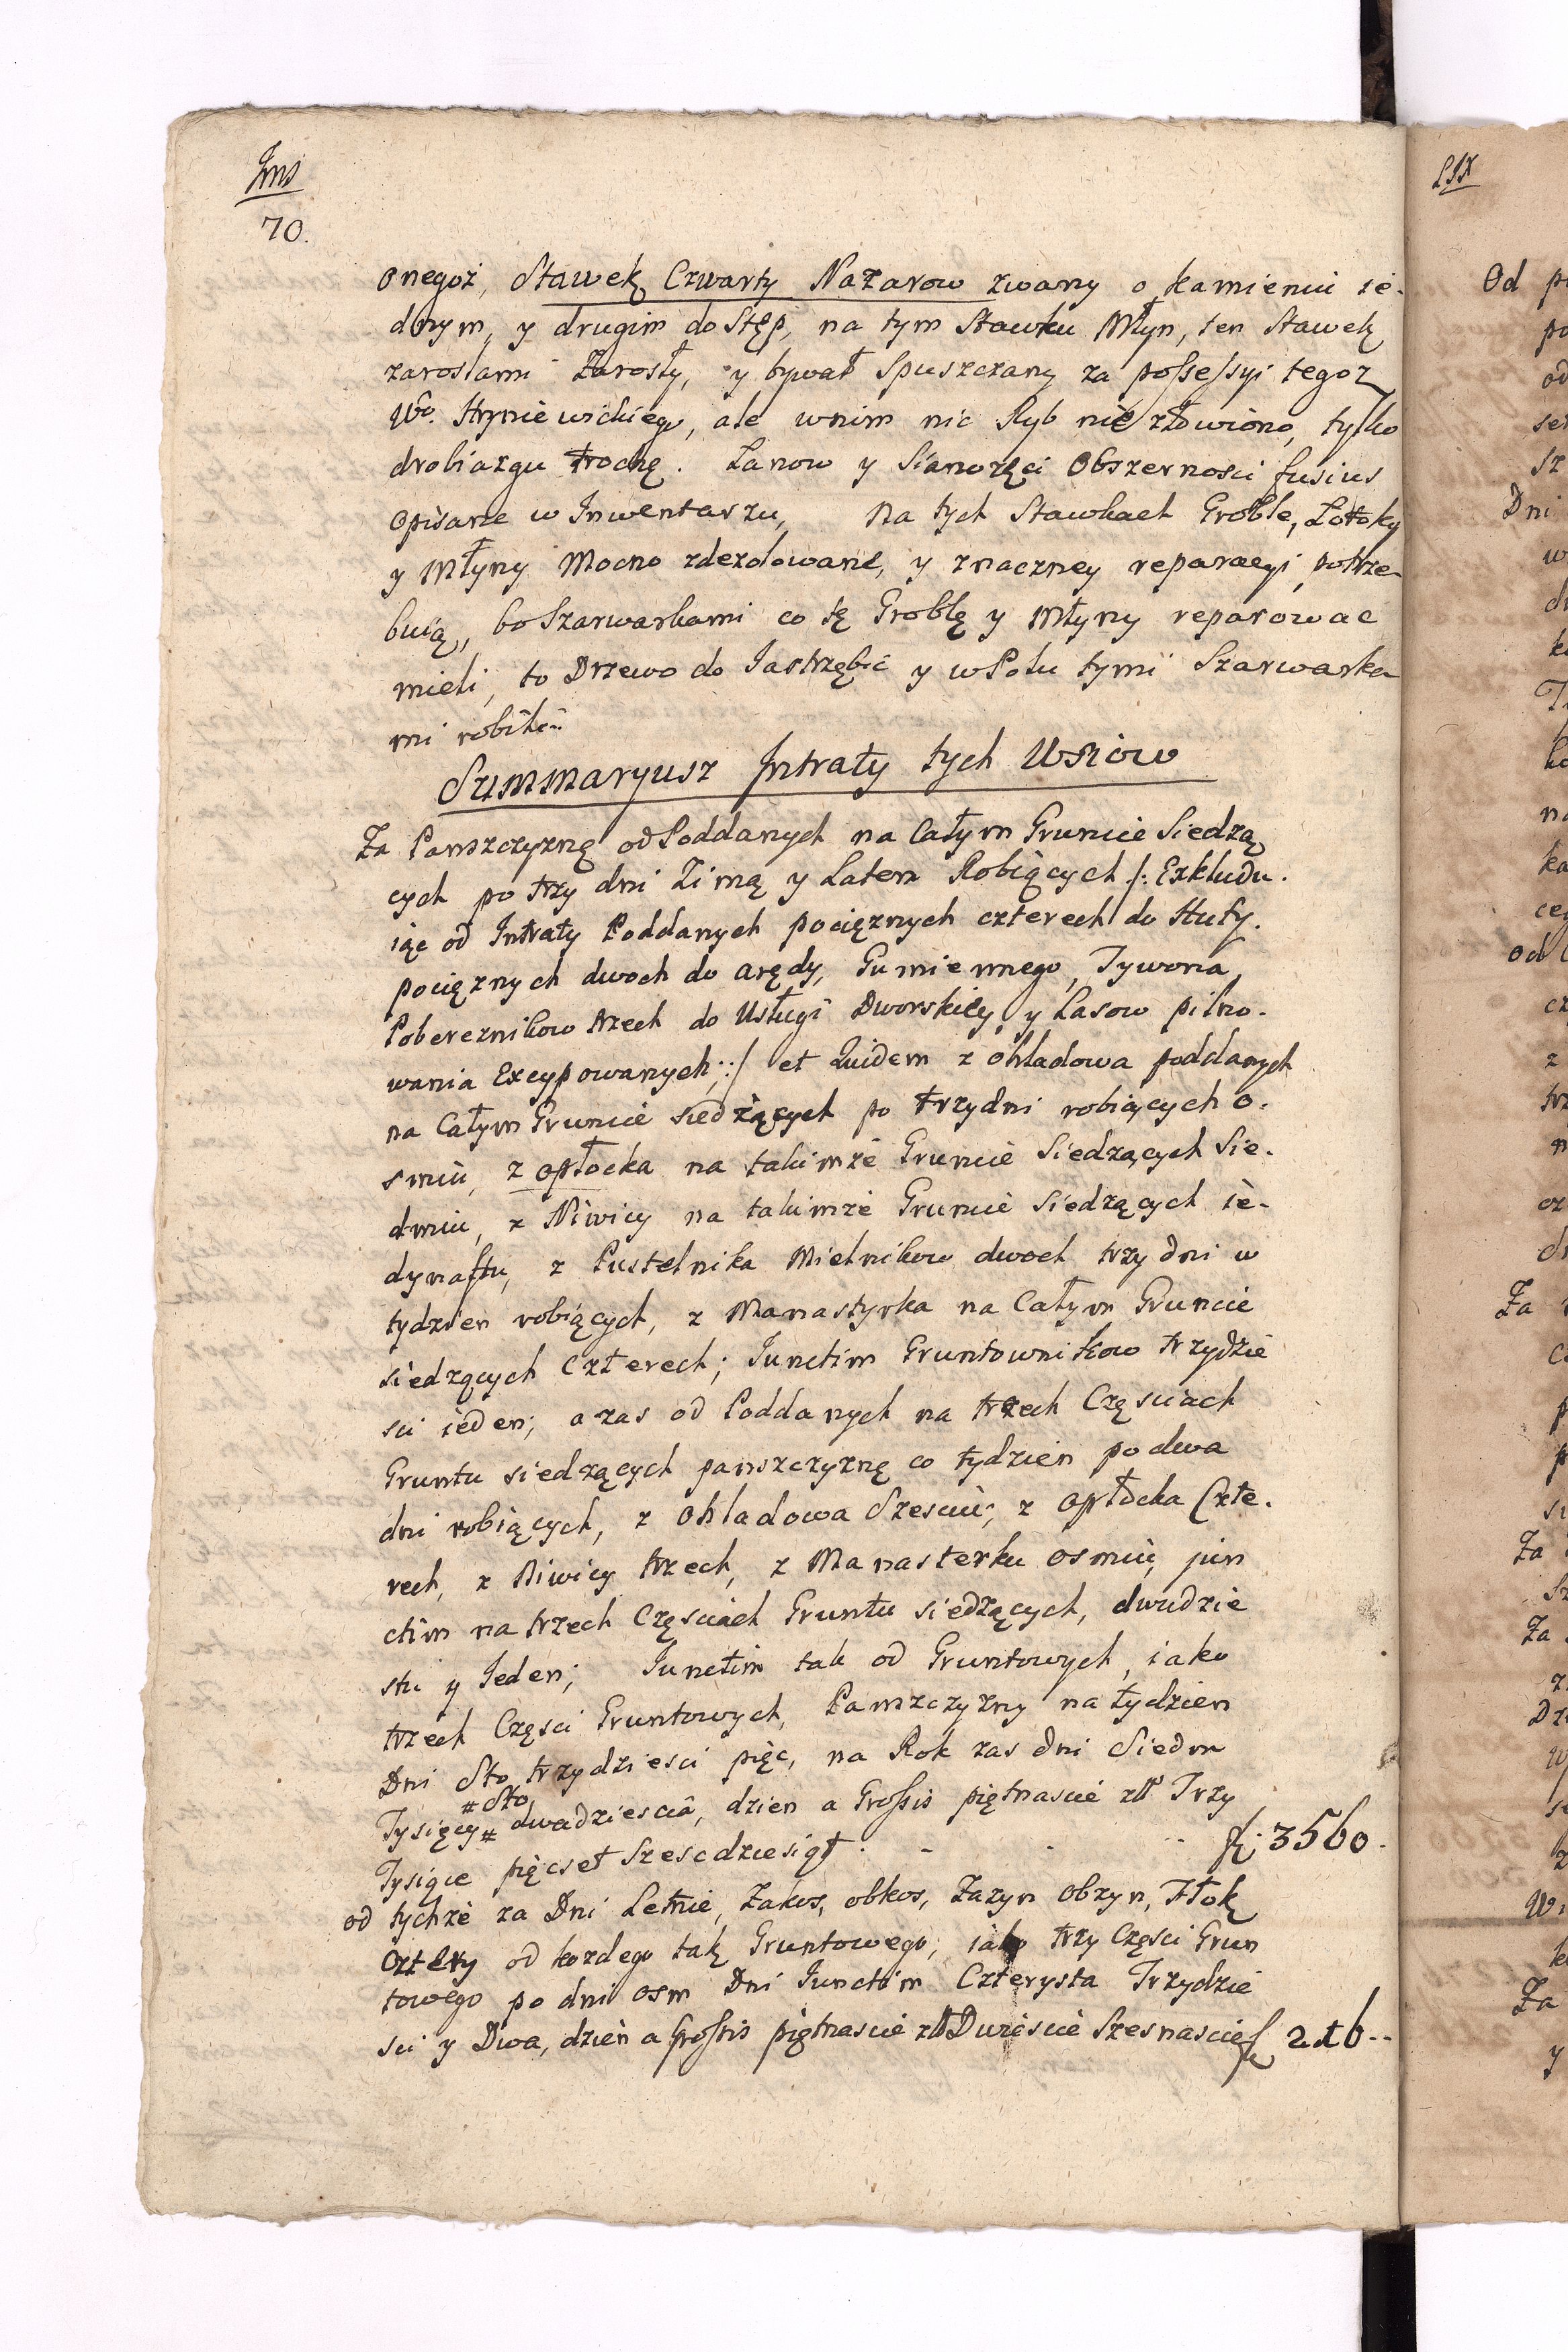 Ims
70.
onegoż, Stawek Czwarty Nazarow zwany o kamieniu ie-
dnym, y drugim do Stęp, na tym Stawku Młyn, ten Stawek
zaroslami Zarosły, y bywał Spuszczany za possessyi tegoz
Wo. Hryniewickiego, ale wnim nic Ryb nie złowiono, tylko
drobiazgu trochę. Lanow y Sianożęci Obszernosci fusius
opisane w Inwentarzu, Na tych Stawkach Groble, Lotoky
y Młyny Mocno zdezolowane, y znaczney reparacyi potrze-
buią, bo Szarwarkami co tę Groblę y Młyny reparowac
mieli, to Drzewo do Jastrzębic y w Polu tymi Szarwarka-
mi robili
Summaryusz Intraty tych Wsiow
Za Panszczyznę od Poddanych na Całym Gruncie Siedzą
cych po trzy dni Zimą y Latem Robiących /: Exkludu-
iąc od Intraty Poddanych pociężnych czterech do Huty.
pociężnych dwoch do arędy, Gumiennego, Tywona,
Pobereznikow trzech do Usługi Dworskiey, y Lasow pilno-
wania Excypowanych; :/ et Quidem z Ohladowa poddanych
na Całym Gruncie siedzących po trzy dni robiących o-
smiu, z opłocka na takimże Gruncie Siedzących Sie-
dmiu, z Niwicy na takimże Gruncie Siedzących ie-
dynastu, z Pustelnika Mielnikow dwoch trzy dni w
tydzien robiących, z Manastyrka na Całym Gruncie
siedzących Czterech; Iunctim Gruntownikow trzydzie
sci ieden; a zas od Poddanych na trzech Częsciach
Gruntu siedzących panszczyznę co tydzien po dwa
dni robiących, z Ohladowa Szesciu; z Opłocka Czte-
rech, z Niwicy trzech, z Manasterku osmiu, jun
ctim na trzech Częsciach Gruntu siedzących, dwudzie
stu y Ieden; Iunctim tak od Gruntowych, iako
trzech Części Gruntowych, Panszczyzny na tydzien
Dni Sto trzydziesci pięc, na Rok zas dni Siedm
# Sto
Tysięcy # dwadziescia, dzien a Grossis piętnascie złł Trzy
Tysiące pięcset Szescdziesiąt . - - - f: 3560.
od tychże za Dni Letnie, Zakos, obkos, Zazyn Obzyn, Tłok
Cztery od kozdego tak Gruntowego, iako trzy Części Grun
towego po dni osm Dni Iunctim Czterysta Trzydzie
sci y Dwa, dzień a Grossis piętnascie złł Dwiescie Szesnascie f 216..